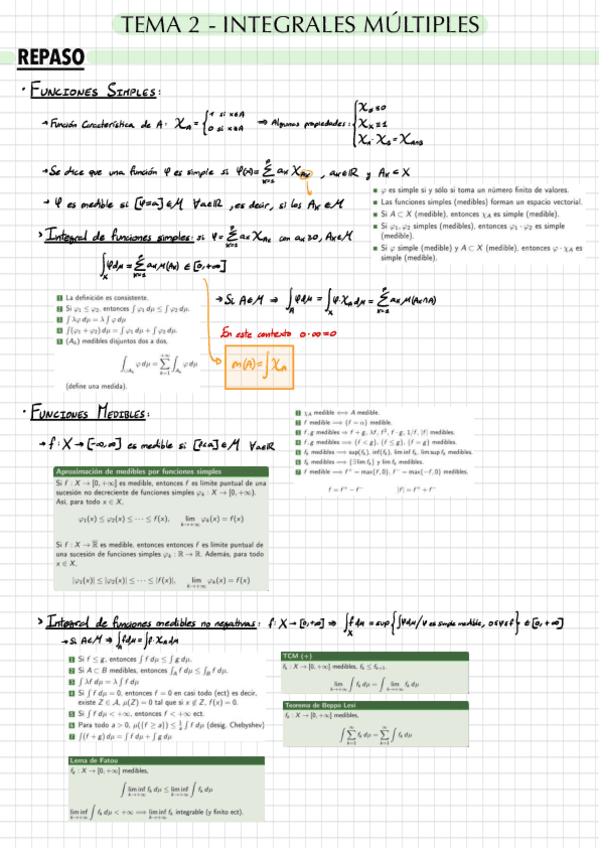 TEMA 2 - INTEGRALES MÚLTIPLES
REPASO
· FUNCIONES SIMPLES:
→ Función Característica de A: χ_A = { 1 si x∈A
0 si x∉A
⇒ Algunas propiedades: { χ_∅ ≡ 0
χ_X ≡ 1
χ_A · χ_B = χ_A∩B
→ Se dice que una función φ es simple si φ(x) = Σ_{k=1}^{p} a_k χ_{A_k}, a_k∈ℝ y A_k ⊂ X
→ φ es medible si [φ=a] ∈ M ∀a∈ℝ, es decir, si los A_k ∈ M
■ φ es simple si y sólo si toma un número finito de valores.
■ Las funciones simples (medibles) forman un espacio vectorial.
■ Si A ⊂ X (medible), entonces χ_A es simple (medible).
■ Si φ₁, φ₂ simples (medibles), entonces φ₁ · φ₂ es simple
(medible).
■ Si φ simple (medible) y A ⊂ X (medible), entonces φ · χ_A es
simple (medible).
> Integral de funciones simples: si φ = Σ_{k=1}^{p} a_k χ_{A_k} con a_k ≥ 0, A_k ∈ M
∫_X φ dμ = Σ_{k=1}^{p} a_k μ(A_k) ∈ [0,+∞]
1 La definición es consistente.
2 Si φ₁ ≤ φ₂, entonces ∫ φ₁ dμ ≤ ∫ φ₂ dμ.
3 ∫ λφ dμ = λ ∫ φ dμ
4 ∫(φ₁ + φ₂) dμ = ∫ φ₁ dμ + ∫ φ₂ dμ.
5 (A_k) medibles disjuntos dos a dos,
∫_{∪A_k} φ dμ = Σ_{k=1}^{+∞} ∫_{A_k} φ dμ
(define una medida).
→ Si A∈M ⇒ ∫_A φ dμ = ∫_X φ·χ_A dμ = Σ_{k=1}^{p} a_k μ(A_k∩A)
En este contexto 0·∞=0
m(A) = ∫ χ_A
· FUNCIONES MEDIBLES:
→ f: X → [-∞,∞] es medible si [f<a] ∈ M ∀a∈ℝ
1 χ_A medible ⟺ A medible.
2 f medible ⟹ {f = α} medible.
3 f, g medibles ⟹ f + g, λf, f², f · g, 1/f, |f| medibles.
4 f, g medibles ⟹ {f < g}, {f ≤ g}, {f = g} medibles.
5 f_k medibles ⟹ sup(f_k), inf(f_k), lim inf f_k, lim sup f_k medibles.
6 f_k medibles ⟹ {∃ lim f_k} y lim f_k medibles.
7 f medible ⟹ f⁺ = max{f, 0}, f⁻ = max{−f, 0} medibles.
f = f⁺ − f⁻ |f| = f⁺ + f⁻
Aproximación de medibles por funciones simples
Si f : X → [0, +∞] es medible, entonces f es límite puntual de una
sucesión no decreciente de funciones simples φ_k : X → [0, +∞).
Así, para todo x ∈ X,
φ₁(x) ≤ φ₂(x) ≤ ··· ≤ f(x), lim_{k→+∞} φ_k(x) = f(x)
Si f : X → ℝ̅ es medible, entonces entonces f es límite puntual de
una sucesión de funciones simples φ_k : ℝ → ℝ. Además, para todo
x ∈ X,
|φ₁(x)| ≤ |φ₂(x)| ≤ ··· ≤ |f(x)|, lim_{k→+∞} φ_k(x) = f(x)
> Integral de funciones medibles no negativas: f: X → [0,+∞] ⇒ ∫_X f dμ = sup{∫φdμ / φ es simple medible, 0≤φ≤f} ∈ [0,+∞]
→ Si A∈M ⇒ ∫_A f dμ = ∫ f·χ_A dμ
1 Si f ≤ g, entonces ∫ f dμ ≤ ∫ g dμ.
2 Si A ⊂ B medibles, entonces ∫_A f dμ ≤ ∫_B f dμ.
3 ∫ λf dμ = λ ∫ f dμ
4 Si ∫ f dμ = 0, entonces f = 0 en casi todo (ect) es decir,
existe Z ∈ A, μ(Z) = 0 tal que si x ∉ Z, f(x) = 0.
5 Si ∫ f dμ < +∞, entonces f < +∞ ect.
6 Para todo a > 0, μ({f ≥ a}) ≤ 1/a ∫ f dμ (desig. Chebyshev)
7 ∫(f + g) dμ = ∫ f dμ + ∫ g dμ
TCM (+)
f_k : X → [0, +∞] medibles, f_k ≤ f_{k+1}.
lim_{k→+∞} ∫ f_k dμ = ∫ lim_{k→+∞} f_k dμ
Teorema de Beppo Levi
f_k : X → [0, +∞] medibles,
∫ Σ_{k=1}^{∞} f_k dμ = Σ_{k=1}^{∞} ∫ f_k dμ
Lema de Fatou
f_k : X → [0, +∞] medibles,
∫ lim inf_{k→+∞} f_k dμ ≤ lim inf_{k→+∞} ∫ f_k dμ
lim inf_{k→+∞} ∫ f_k dμ < +∞ ⟹ lim inf_{k→+∞} f_k integrable (y finito ect).